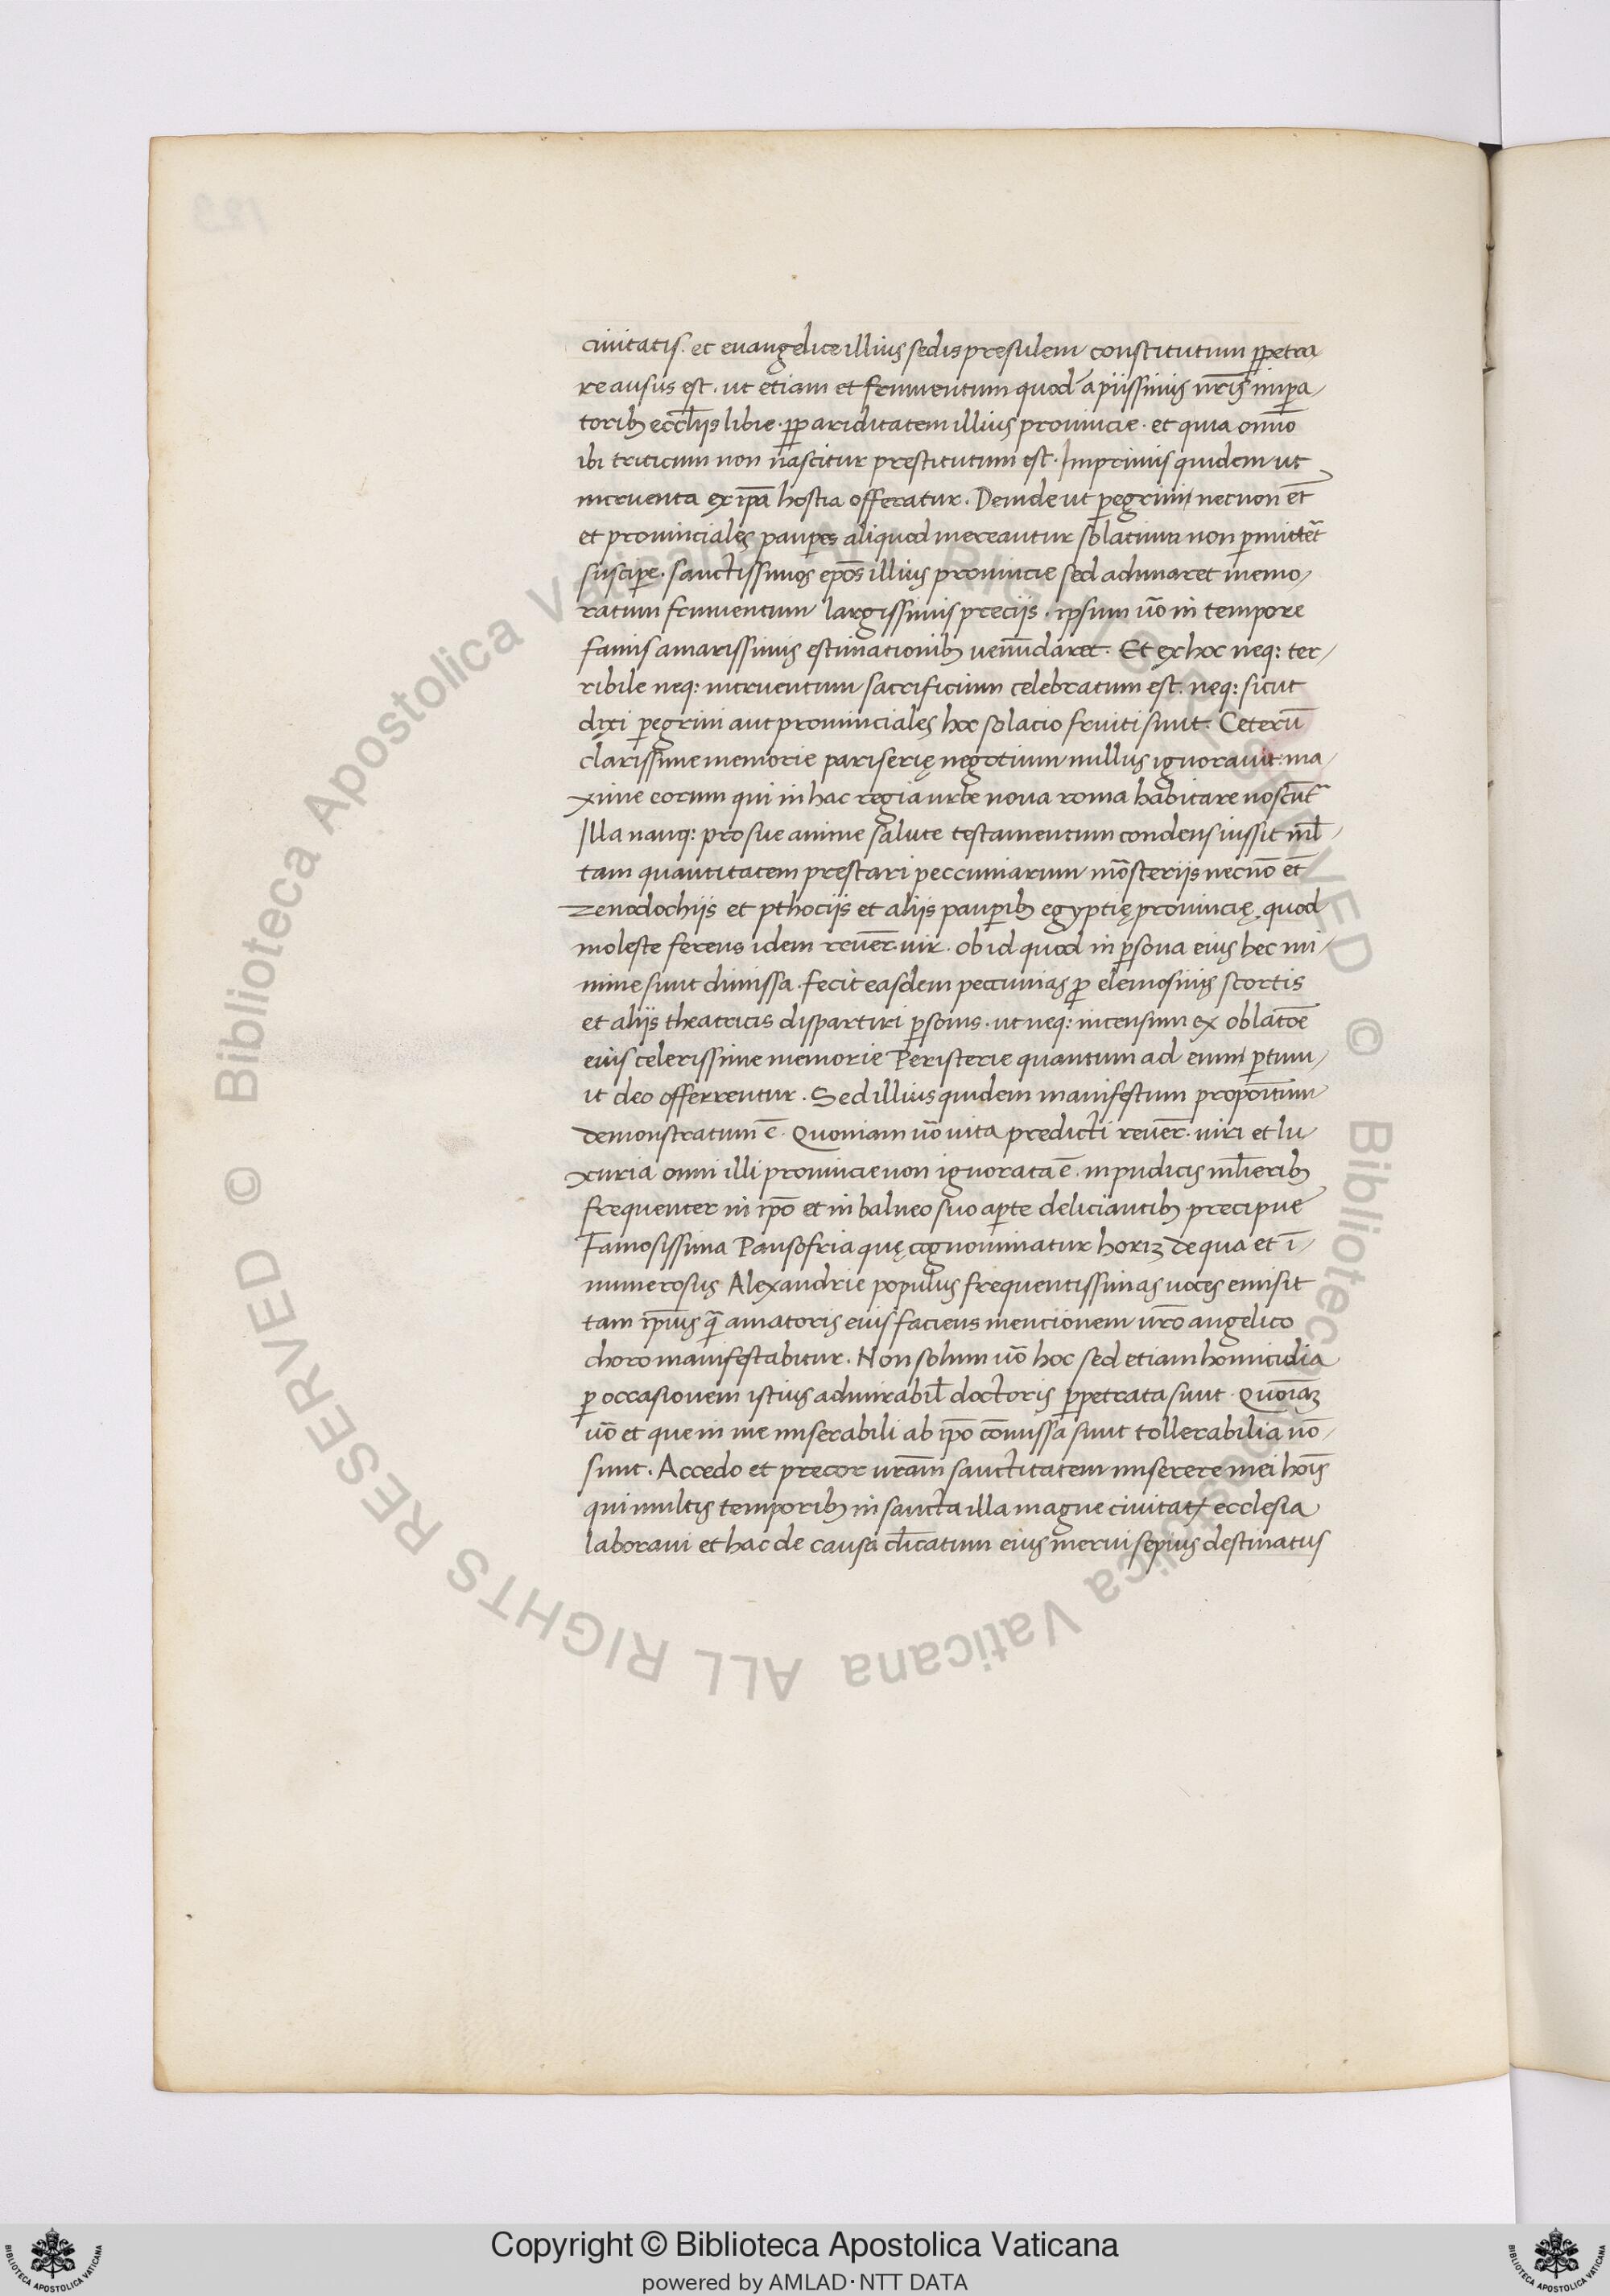 ciuitatis. et euangelice illius sedis presulem constitutum ꝑpetra
re ausus est. ut etiam et frumentum quod a piissimis nr̄is imꝑa-
torib; eccl̄iis libie. ꝓp ariditatem illius prouincie. et quia om̄o
ibi triticum non nascitur prestitutum est. Imprimis quidem ut
incruenta ex ip̄a hostia offeratur. Deinde ut ꝑegrini necnon et̄
et prouinciales pauꝑes aliquod mereantur solatium non ꝑmittet̄
susciꝑe. sanctissimos ep̄os illius prouincie sed adunaret memo-
ratum frumentum largissimis preciis. ipsum ū̄o in tempore
famis amarissimis estimationib; uenūdaret. Et ex hoc neq: ter-
ribile neq: incruentum sacrificium celebratum est. neq: sicut
dixi ꝑegrini aut prouinciales hoc solacio fruiti sunt. Ceterū
clarissime memorie pariserię negotium nullus ignorauit: ma-
xime eorum qui in hac regia urbe noua roma habitare noscūt̄
Illa nanq: pro sue anime salute testamentum condens iussit ml̄-
tam quantitatem prestari peccuniarum mōsteriis necnō et̄
zenodochiis et pthociis et aliis pauꝑib; egyptię prouincię. quod
moleste ferens idem reuer̄. uir. ob id quod in ꝑsona eius hec mi-
nime sunt dimissa. fecit easdem peccunias ꝓ elemosinis scortis
et aliis theatricis dispartiri ꝑsonis. ut neq: incensum ex oblatōe
eius celerissime memorie Peristerie quantum ad eum ꝑtinu-
it deo offerrentur. Sed illius quidem manifestum propoītum
demonstratum ē. Quoniam ū̄o uita predicti reuer̄. uiri et lu-
xuria omni illi prouincie non ignorata ē. inpudicis ml̄ierib;
frequenter in ip̄o et in balneo suo aꝑte deliciantib; precipue
Famosissima Pansofria quę cognominatur horiꝫ de qua et ī-
numerosus Alexandrie populus frequentissimas uoces emisit
tam ip̄ius q̄ amatoris eius faciens mencionem ur̄o angelico
choro manifestabitur. Non solum ū̄o hoc sed etiam homicidia
ꝑ occasionem istius admirabil̄ doctoris ꝑpetrata sunt. Quoīaꝫ
ū̄o et que in me miserabili ab ip̄o cōmissa sunt tollerabilia nō-
sunt. Accedo et precor ur̄am sanctitatem miserere mei hōis
qui multis temporib; in sancta illa magne ciuitatꝭ ecclesia
laboraui et hac de causa cl̄icatum eius merui sepius destinatus
Copyright © Biblioteca Apostolica Vaticana
powered by AMLAD·NTT DATA